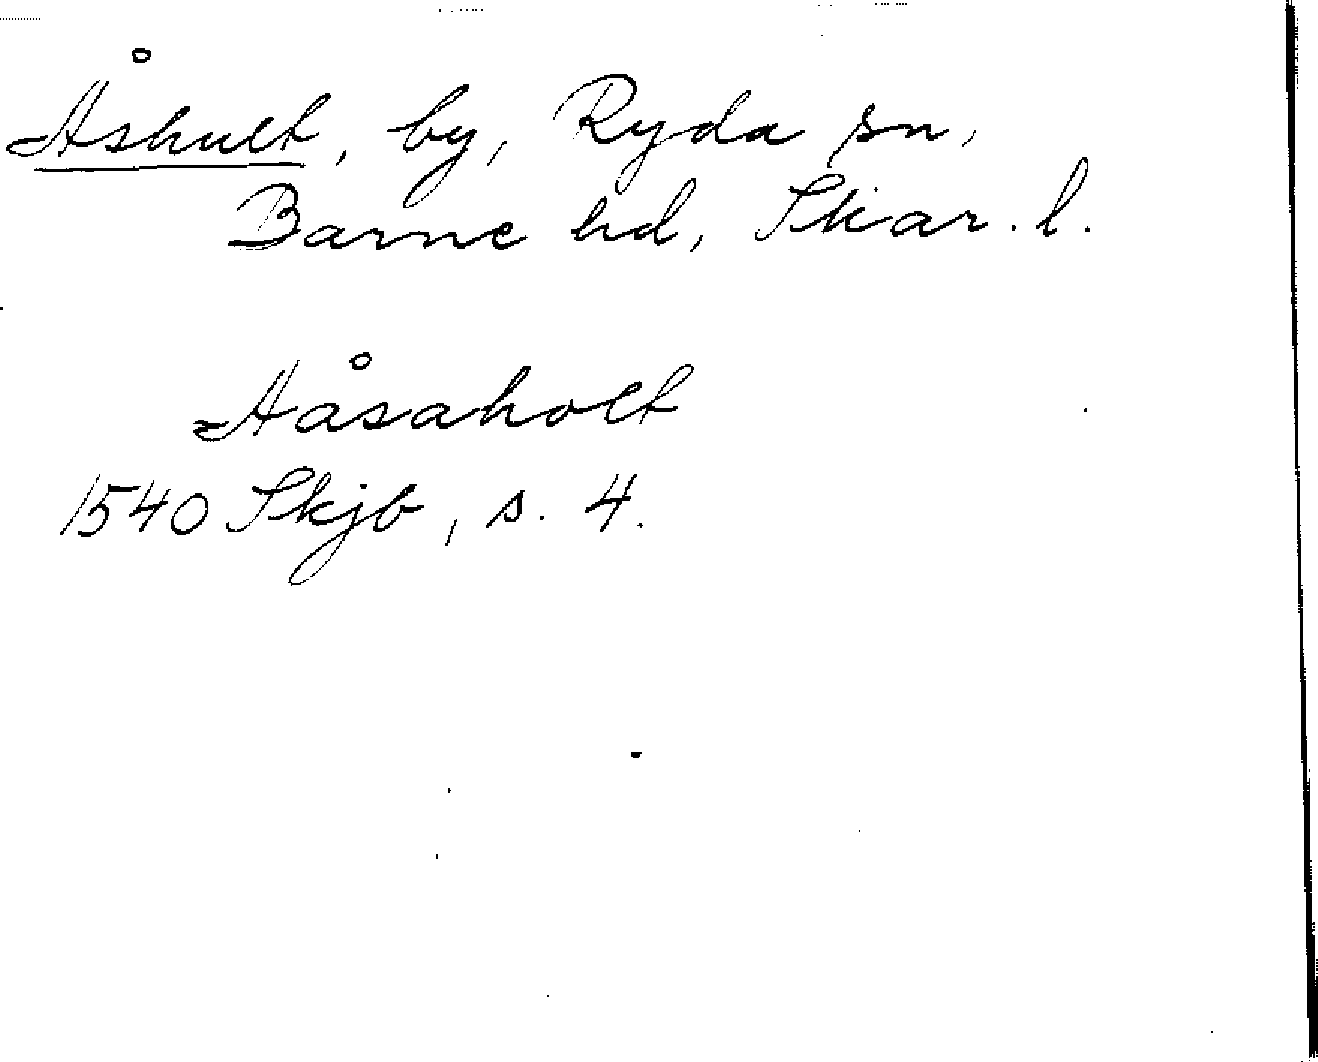 Åshult, by, Ryda sn,
Barne hd, Skar. l.
Aåsaholt
1540 Skjb, s. 4.